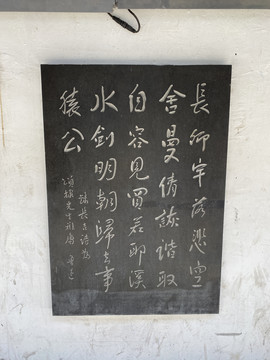 長卿牢落悲空
舍曼倩詼諧取
自容見買若耶溪
水劍明朝歸去事
猿公
錄長吉詩為
先生雅屬